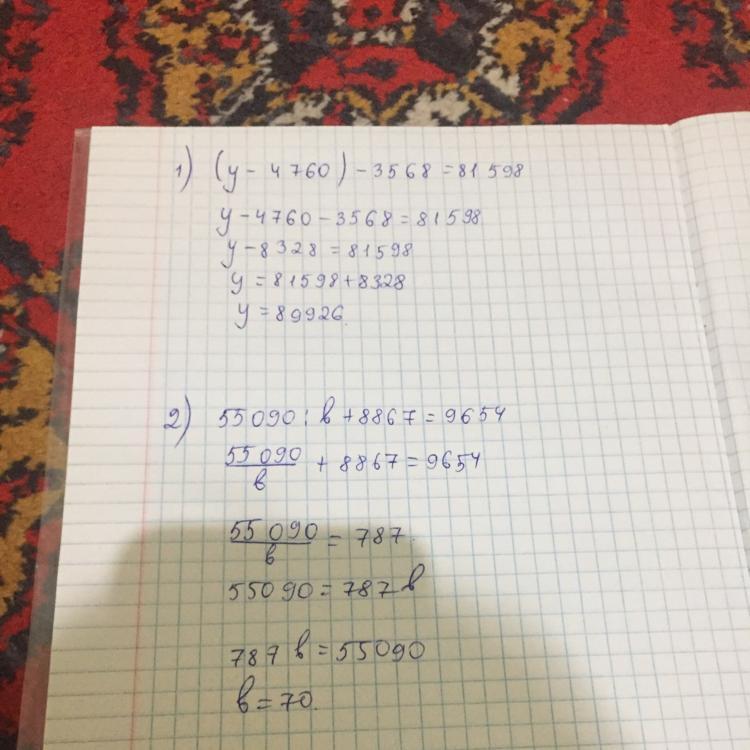 1) (y - 4760) - 3568 = 81598
y - 4760 - 3568 = 81598
y - 8328 = 81598
y = 81598 + 8328
y = 89926.
2) 55090 : в + 8867 = 9654
55090/в + 8867 = 9654
55090/в = 787.
55090 = 787 в
787 в = 55090
в = 70.